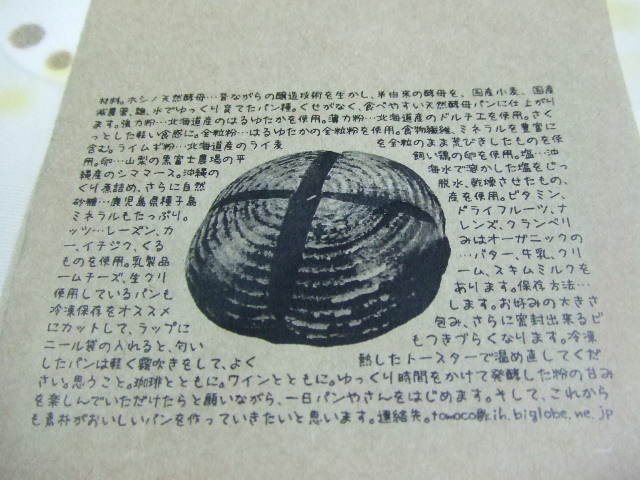 材料。ホシノ天然酵母…昔ながらの醸造技術を生かし、半由来の酵母を、国産小麦、国産
減農薬、麹、水でゆっくり育てたパン種。くせがなく、食べやすい天然酵母パンに仕上がり
ます。強力粉…北海道産のはるゆたかを使用。薄力粉…北海道産のドルチエを使用。さく
っとした軽い食感に。全粒粉…はるゆたかの全粒粉を使用。食物繊維、ミネラルを豊富に
含む。ライムギ粉…北海道産のライ麦 を全粒のまま荒びきしたものを使
用。卵…山梨の黒富士農場の平 飼い鶏の卵を使用。塩…沖
縄産のシママース。沖縄の 海水で溶かした塩をじっ
くり煮詰め、さらに自然 脱水、乾燥させたもの、
砂糖…鹿児島県種子島 産を使用。ビタミン、
ミネラルもたっぷり。 ドライフルーツ、ナ
ッツ…レーズン、カ レンズ、クランベリ
ー、イチジク、くる みはオーガニックの
ものを使用。乳製品 …バター、牛乳、クリ
ームチーズ、生クリ ーム、スキムミルクを
使用しているパンも あります。保存方法…
冷凍保存をオススメ します。お好みの大きさ
にカットして、ラップに 包み、さらに密封出来るビ
ニール袋の入れると、匂い もつきづらくなります。冷凍
したパンは軽く霧吹きをして、よく 熱したトースターで温め直してくだ
さい。思うこと。珈琲とともに。ワインとともに。ゆっくり時間をかけて発酵した粉の甘み
を楽しんでいただけたらと願いながら、一日パンやさんをはじめます。そして、これから
も素朴がおいしいパンを作っていきたいと思います。連絡先。